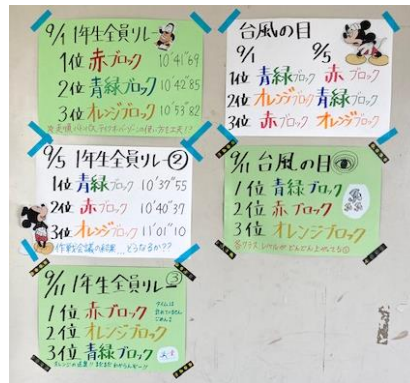 9/1 1年生全員リレー
1位 赤ブロック 10'41"69
2位 青緑ブロック 10'42"85
3位 オレンジブロック 10'53"82
台風の目
9/1 9/5
1位 青緑ブロック 赤ブロック
2位 オレンジブロック 青緑ブロック
3位 赤ブロック オレンジブロック
9/5 1年生全員リレー②
1位 青緑ブロック 10'37"55
2位 赤ブロック 10'40"37
3位 オレンジブロック 11'01"10
作戦会議の結果…どうなるか??
9/11 台風の目
1位 青緑ブロック
2位 赤ブロック
3位 オレンジブロック
各クラス、レベルがどんどん上がってる
9/11 1年生全員リレー③
1位 赤ブロック
2位 オレンジブロック
3位 青緑ブロック
タイムは
ごめんね